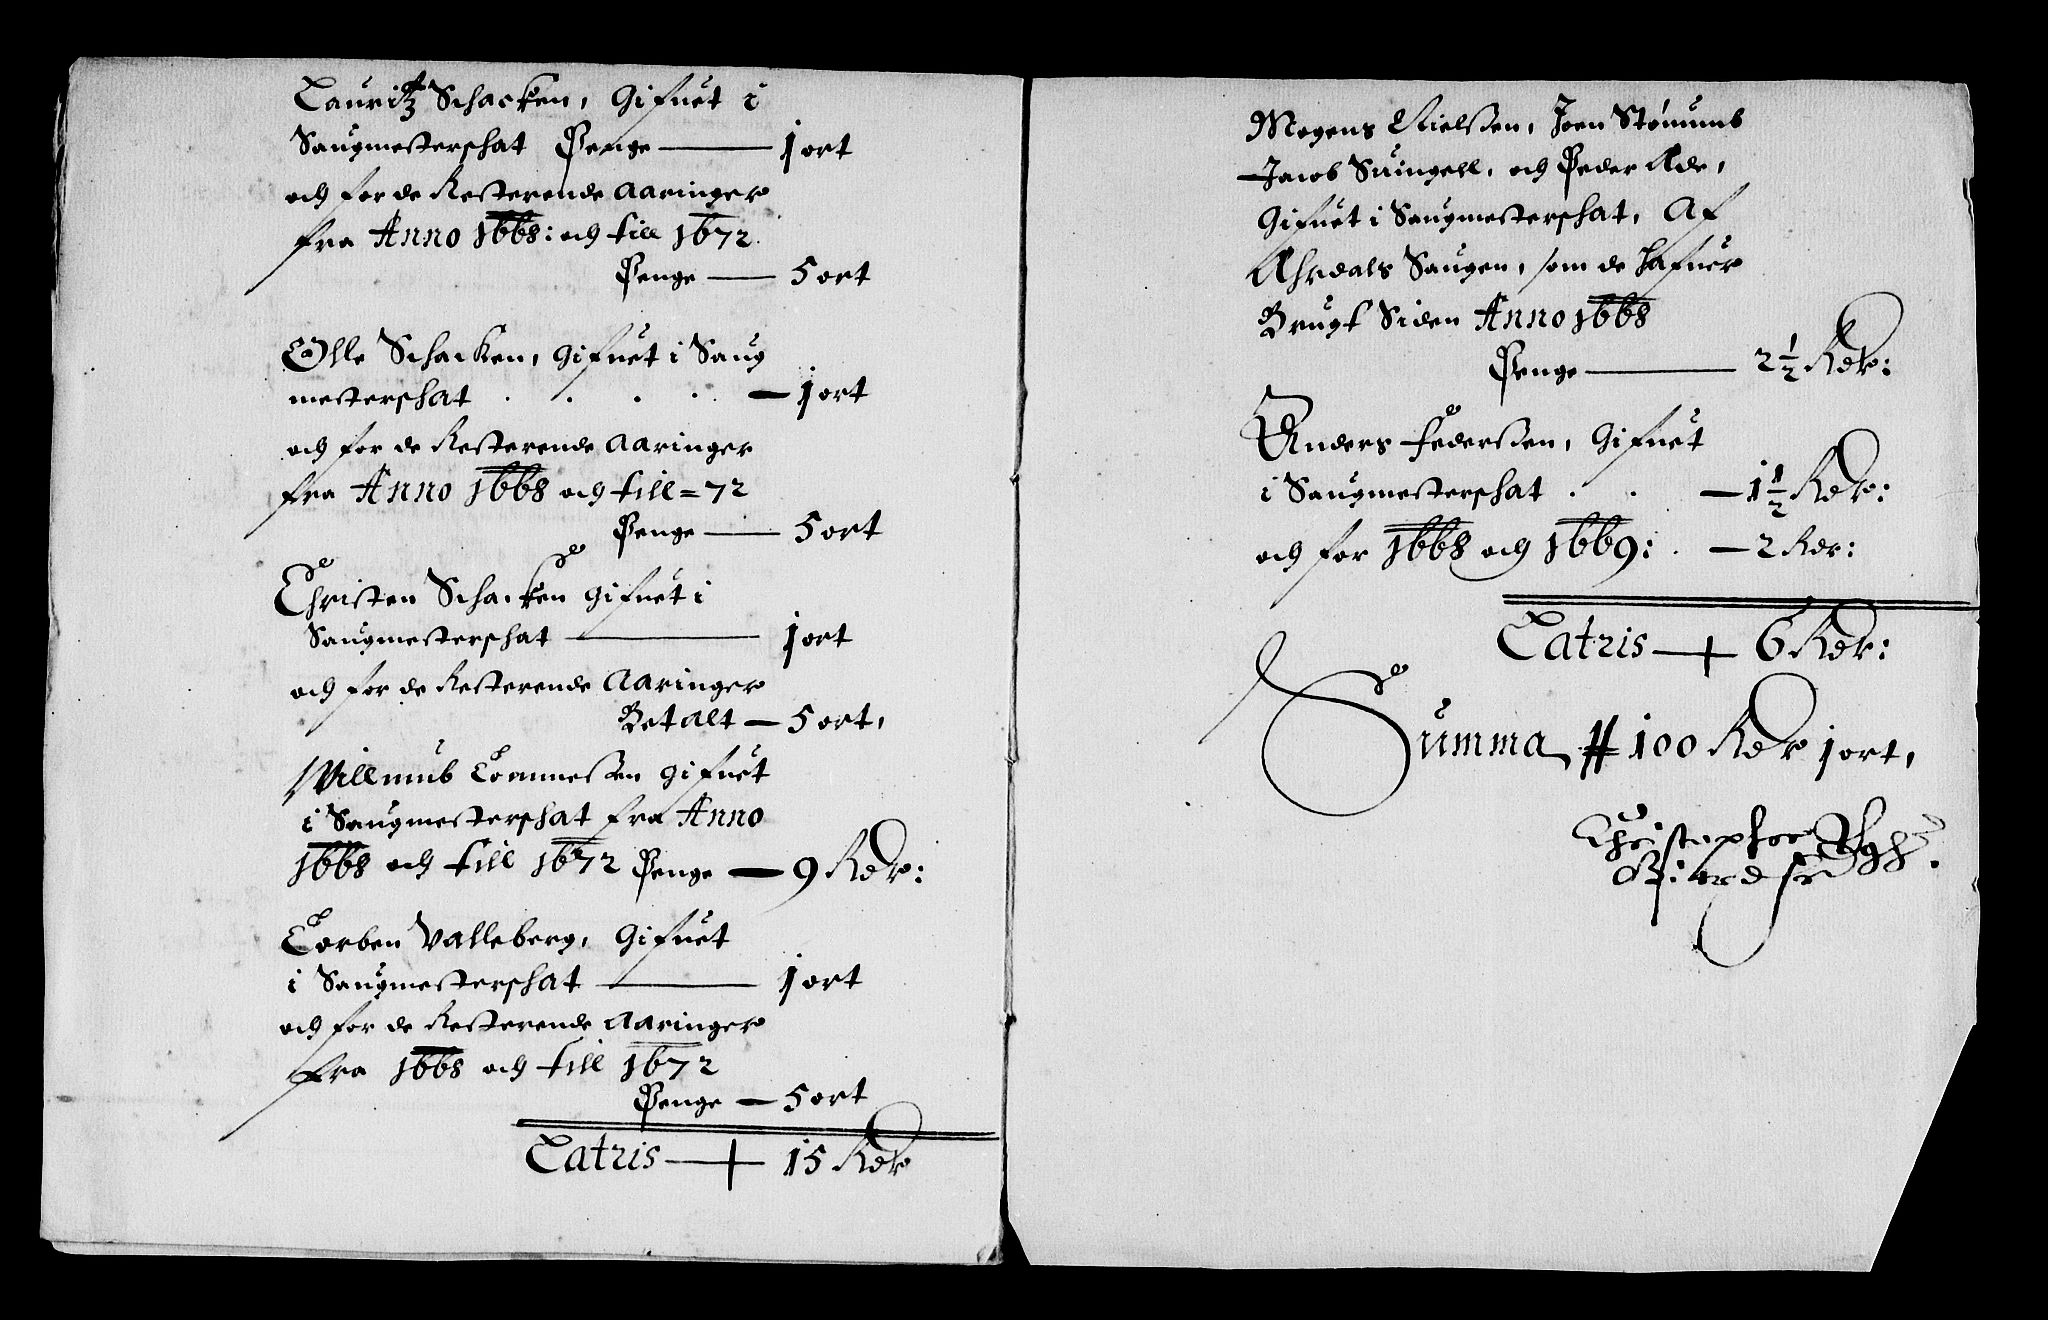 Lauritz Schacken, Gifuet i
Saugmesterschat Penge — 1 ort
och for de Resterende Aaringer
fra Anno 1668: och till 1672.
Penge — 5 ort
Olle Schacken, Gifuet i Saug
mesterschat . . . . — 1 ort
och for de Resterende Aaringer
fra Anno 1668 och till = 72
Penge — 5 ort
Christen Schacken gifuet i
Saugmesterschat — 1 ort
och for de Resterende Aaringer
Betalt — 5 ort,
Willumb gifuet
i Saugmesterschat fra Anno
1668 och till 1672 Penge — 9 Rdr:
Torben Valleberg, Gifuet
i Saugmesterschat — 1 ort
och for de Resterende Aaringer
fra 1668 och till 1672
Penge — 5 ort
Latris — 15 Rdr
Mogens Nielssen, Joen Stømumb
Jacob Suingell, och Peder Ade,
Gifuet i Saugmesterschat, Af
Ahrdals Saugen, som de hafuer
Brugt Siden Anno 1668
Penge — 2 1/2 Rdr:
Anders Pederssen, Gifuet
i Saugmesterschat . . — 1 1/2 Rdr:
och for 1668 och 1669: . — 2 Rdr:
Latris — 6 Rdr:
Summa # 100 Rdr 1 ort,
Christopher